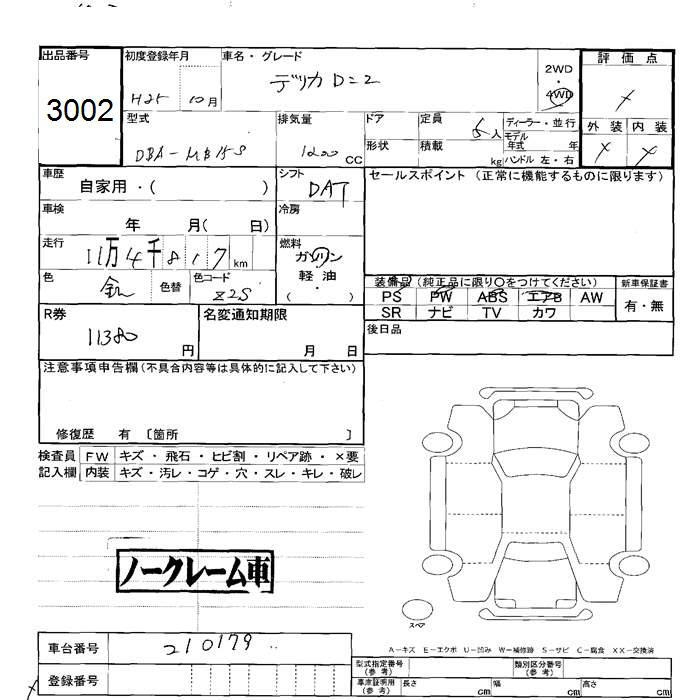 出品番号 初度登録年月 車名・グレード 評価点
3002 H25 10月 デリカ D=2 2WD
4WD
型式 排気量 ドア 定員 ディーラー・並行 外装 内装
DBA-MB15S 1200 CC 5人 モデル年式 年
形状 積載 kg ハンドル 左・右
車歴 シフト セールスポイント(正常に機能するものに限ります)
自家用・( ) DAT
車検 冷房
年 月( 日)
走行 燃料
11万4千817km ガソリン
軽油
( )
色 銀 色替 色コード Z2S
装備品(純正品に限り○をつけてください) 新車保証書
PS PW ABS エアB AW 有・無
SR ナビ TV カワ
R券 名変通知期限 後日品
11380円 月 日
注意事項申告欄(不具合内容等は具体的に記入して下さい)
修復歴 有 〔箇所 〕
検査員 FW キズ・飛石・ヒビ割・リペア跡・×要
記入欄 内装 キズ・汚レ・コゲ・穴・スレ・キレ・破レ
ノークレーム車
スペア
A-キズ E-エクボ U-凹み W-補修跡 S-サビ C-腐食 XX-交換済
車台番号 210179
登録番号
型式指定番号(参考) 類別区分番号(参考)
車庫証明用(参考) 長さ cm 幅 cm 高さ cm